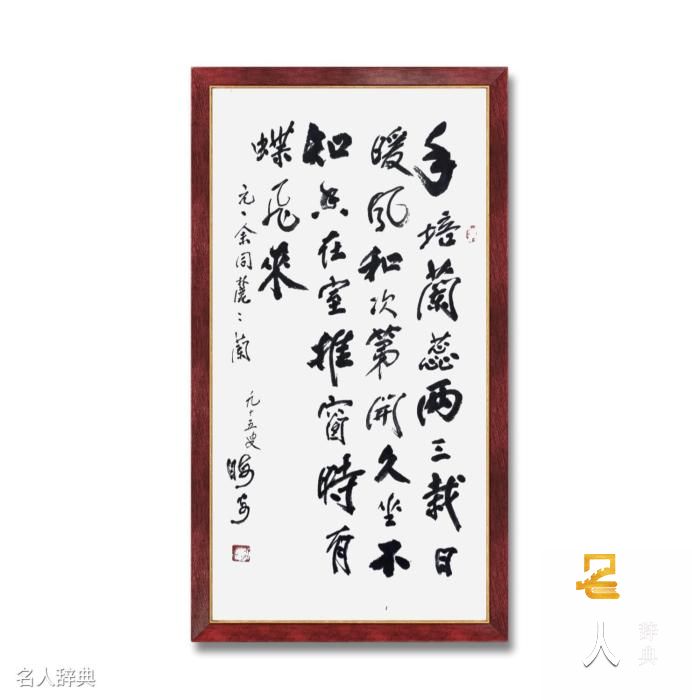 手培蘭蕊两三栽日
暖風和次第開久坐不
知香在室推窗時有
蝶飛來
元、余同麓：蘭
九十五叟
名人辞典
人
辞典